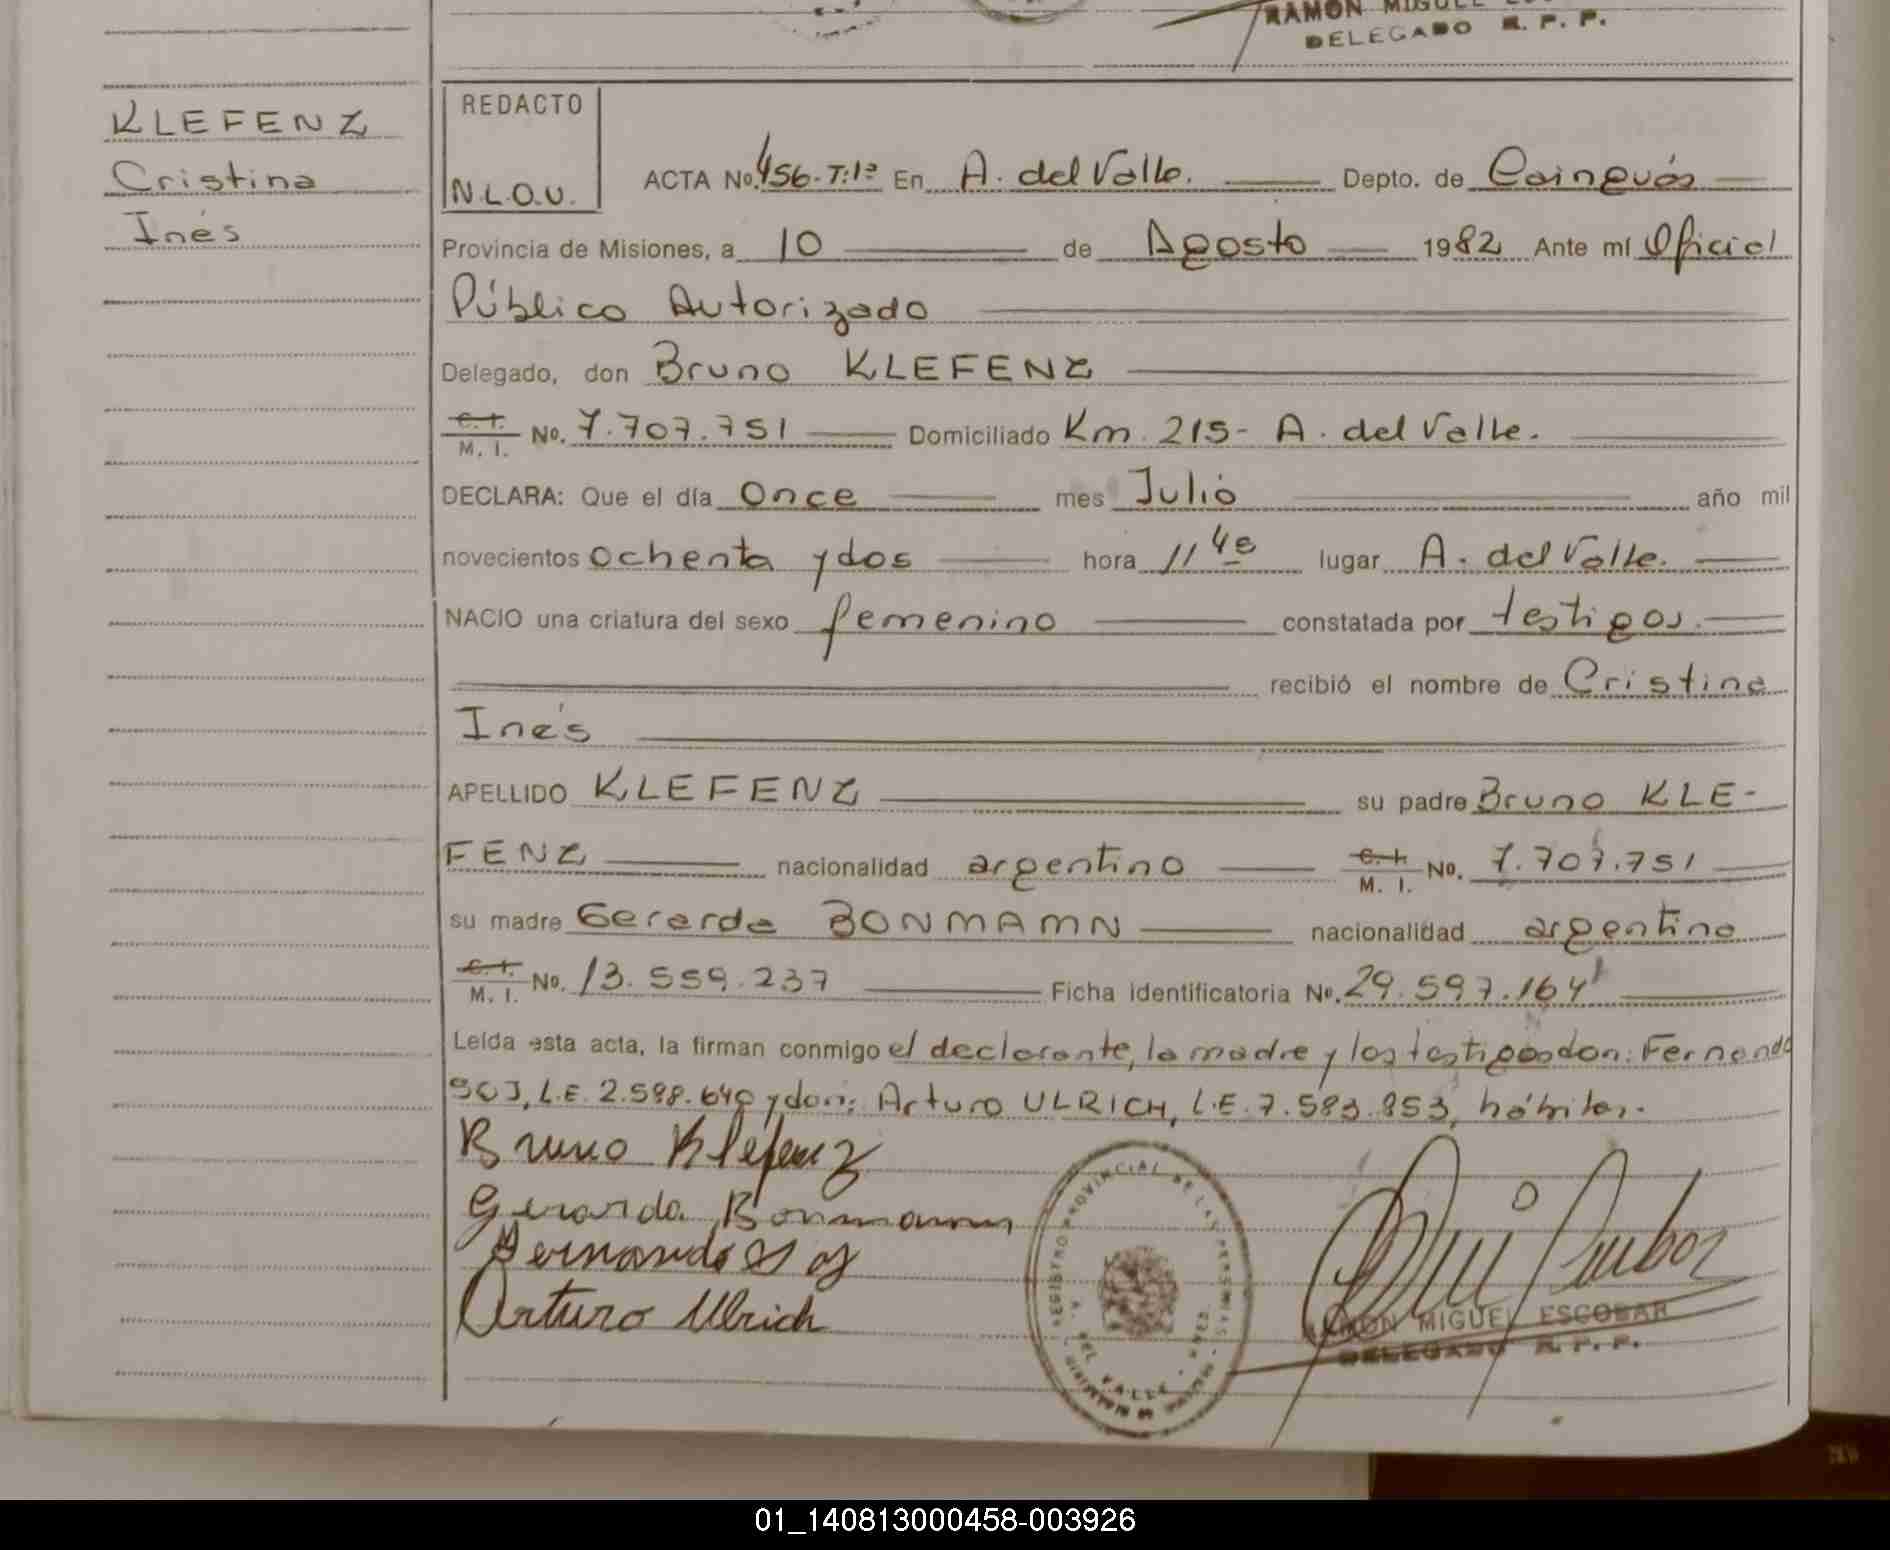 RAMON MIGUEL
DELEGADO R. P. P.
KLEFENZ
Cristina
Inés
REDACTO
N.L.O.U.
ACTA No. 456-T:1º En A. del Valle. Depto. de Cainguás
Provincia de Misiones, a 10 de Agosto 1982 Ante mí Oficial
Público Autorizado
Delegado, don Bruno KLEFENZ
C. I. M. I. No. 7.707.751 Domiciliado Km. 215- A. del Valle.
DECLARA: Que el día Once mes Julio año mil
novecientos ochenta y dos hora 11 lugar A. del Valle.
NACIO una criatura del sexo femenino constatada por testigos.
recibió el nombre de Cristina
Inés
APELLIDO KLEFENZ su padre Bruno KLE-
FENZ nacionalidad argentino C. I. M. I. No. 7.707.751
su madre Gerarda BONMAMN nacionalidad argentina
C. I. M. I. No. 13.559.237 Ficha identificatoria No. 29.597.164
Leída esta acta, la firman conmigo el declarante, la madre y los testigos don: Fernando
SOJ, L.E. 2.588.640 y don: Arturo ULRICH, L.E. 7.583.853, hábiles.
Bruno Klefenz
Gerarda Bonmann
Fernando Soj
Arturo Ulrich
REGISTRO PROVINCIAL DE LAS PERSONAS
A. DEL VALLE
RAMON MIGUEL ESCOBAR
DELEGADO R. P. P.
01_140813000458-003926